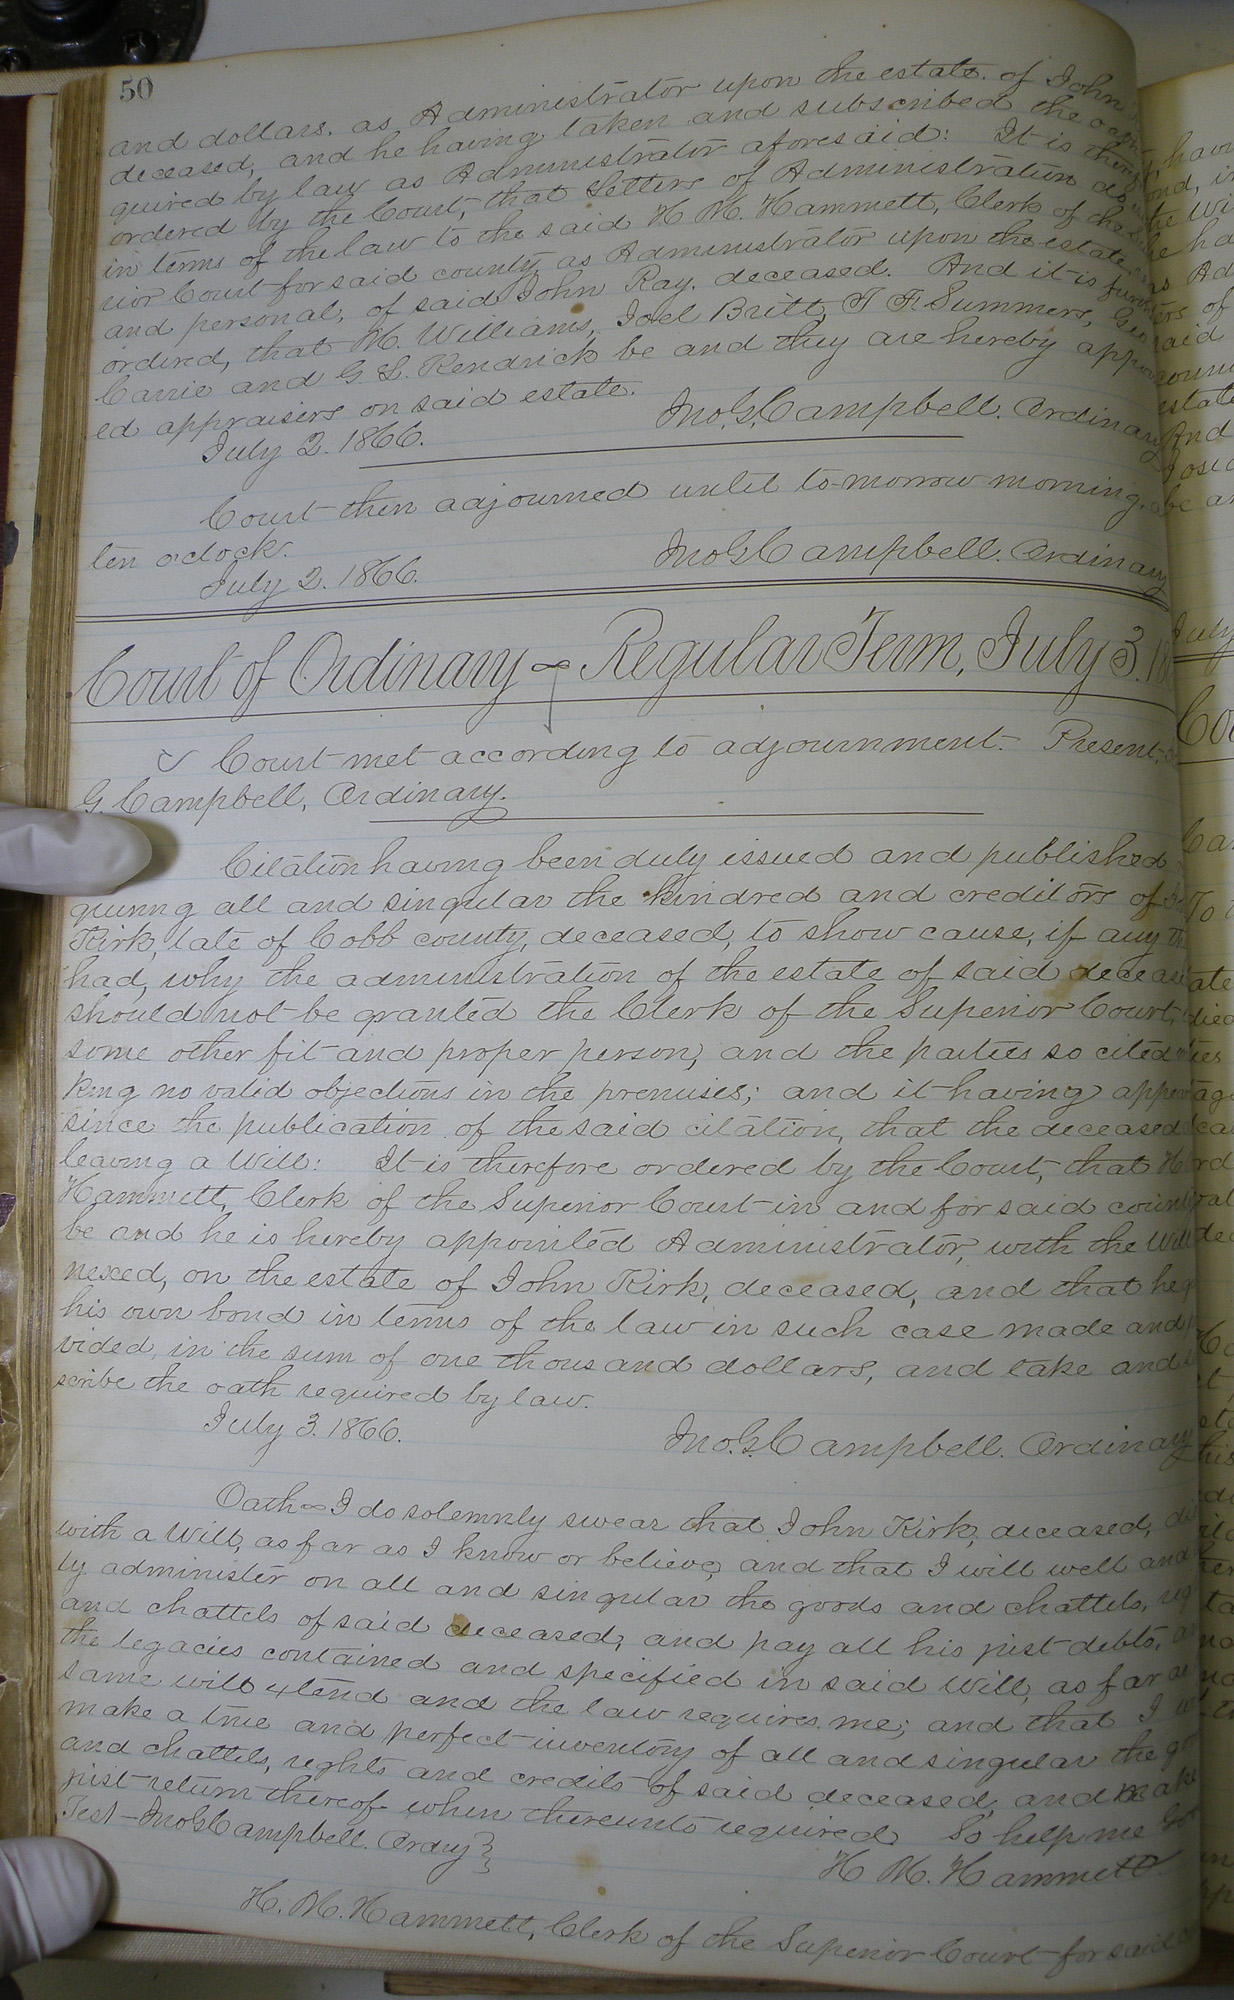 50
and dollars, as Administrator upon the estate of John
deceased, and he having taken and subscribed the oath
quired by law as Administrator aforesaid: It is there
ordered by the Court, that Letters of Administration do
in terms of the law to the said H M. Hammett, Clerk of the Supe
rior Court for said county, as Administrator upon the estate
and personal, of said John Ray, deceased. And it is further
ordered, that M. Williams, Joel Britt, T F. Summers, Geo
Carrie and G S. Kendrick be and they are hereby appoint
ed appraisers on said estate.
July 2. 1866. Jno. G. Campbell. Ordinary
Court then adjourned until to-morrow morning,
ten o'clock.
July 2. 1866. Jno G Campbell. Ordinary
Court of Ordinary ~ Regular Term, July 3. 18
Court met according to adjournment. Present,
G. Campbell, Ordinary.
Citation having been duly issued and published
quiring all and singular the kindred and creditors of
Kirk, late of Cobb county, deceased, to show cause, if any
had, why the administration of the estate of said deceas
should not be granted the Clerk of the Superior Court,
some other fit and proper person, and the parties so cited
king no valid objections in the premises; and it having appear
since the publication of the said citation, that the deceased
leaving a Will: It is therefore ordered by the Court, that H
Hammett, Clerk of the Superior Court in and for said county
be and he is hereby appointed Administrator, with the Will
nexed, on the estate of John Kirk, deceased, and that he
his own bond in terms of the law in such case made and
vided, in the sum of one thousand dollars, and take and
scribe the oath required by law.
July 3. 1866. Jno. G. Campbell. Ordinary
Oath ~ I do solemnly swear that John Kirk, deceased,
with a Will, as far as I know or believe, and that I will well and
ly administer on all and singular the goods and chattels,
and chattels of said deceased, and pay all his just debts,
the legacies contained and specified in said Will, as far as
same will extend and the law requires me; and that I
make a true and perfect inventory of all and singular the
and chattels, rights and credits of said deceased, and make
just return thereof when thereunto required. So help me God
Test - Jno G Campbell. Ordry } H M. Hammett
H. M. Hammett, Clerk of the Superior Court for said